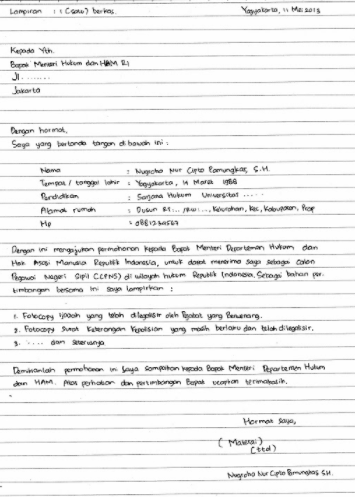 Lampiran : 1 (satu) berkas. Yogyakarta, 11 Mei 2015
Kepada Yth.
Bapak Menteri Hukum dan HAM RI
Jl. .......
Jakarta
Dengan hormat,
Saya yang bertanda tangan di bawah ini :
Nama : Nugroho Nur Cipto Pamungkas, S.H.
Tempat / tanggal lahir : Yogyakarta, 14 Maret 1988
Pendidikan : Sarjana Hukum Universitas .....
Alamat rumah : Dusun RT... /RW..., Kelurahan, Kec, Kabupaten, Prop
Hp :
Dengan ini mengajukan permohonan kepada Bapak Menteri Departemen Hukum dan
Hak Asasi Manusia Republik Indonesia, untuk dapat menerima saya sebagai Calon
Pegawai Negeri Sipil (CPNS) di wilayah hukum Republik Indonesia. Sebagai bahan per-
timbangan bersama ini saya lampirkan :
1. Fotocopy ijazah yang telah dilegalisir oleh Pejabat yang Berwenang.
2. Fotocopy Surat Keterangan Kepolisian yang masih berlaku dan telah dilegalisir.
3. .... dan seterusnya
Demikianlah permohonan ini saya sampaikan kepada Bapak Menteri Departemen Hukum
dan HAM. Atas perhatian dan pertimbangan Bapak ucapkan terimakasih.
Hormat saya,
( Materai )
(ttd)
Nugroho Nur Cipto Pamungkas S.H.